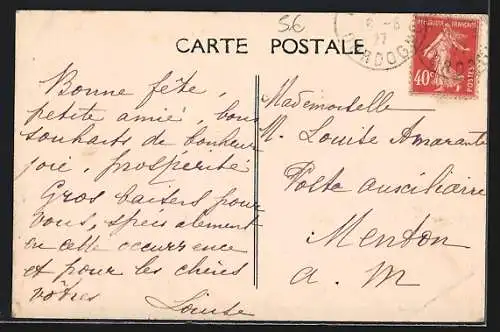 56
CARTE POSTALE
6 - 8
27
DORDOGNE
REPUBLIQUE FRANÇAISE
40c
POSTES
Bonne fête,
petite amie, bons
souhaits de bonheur
joie, prospérité
Gros baisers pour
vous, spécialement
en cette occurrence
et pour les chères
vôtres
Louise
Mademoiselle
M. Louise Amarante
Poste auxiliaire
Menton
A. M